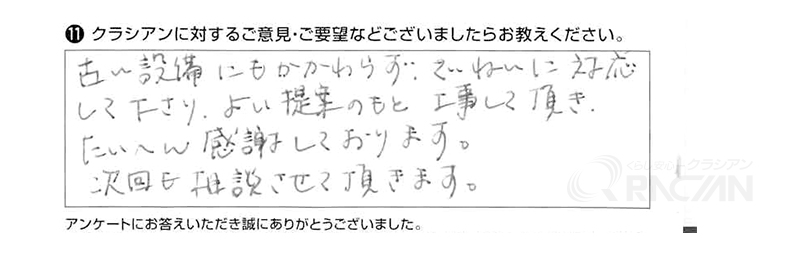 ⑪ クラシアンに対するご意見・ご要望などございましたらお教えください。
古い設備にもかかわらず、ていねいに対応
して下さり、よい提案のもと 工事して頂き、
たいへん 感謝しております。
次回も相談させて頂きます。
くらし安心クラシアン
QRACIAN
アンケートにお答えいただき誠にありがとうございました。